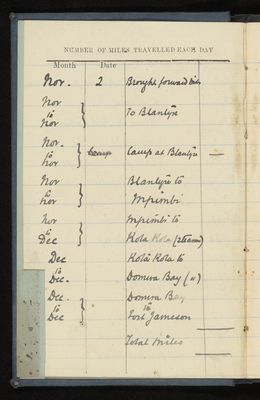 NUMBER OF MILES TRAVELLED EACH DAY
Month Date
Nov. 2 Brought forward
Nov
to To Blantyre
Nov
Nov.
to Camp at Blantyre —
Nov
Nov Blantyre to
to Mpimbi
Nov
Nov Mpimbi to
to
Dec Kota Kota (steamer)
Dec Kota Kota to
to
Dec. Domira Bay (")
Dec. Domira Bay
to to
Dec Fort Jameson
Total miles